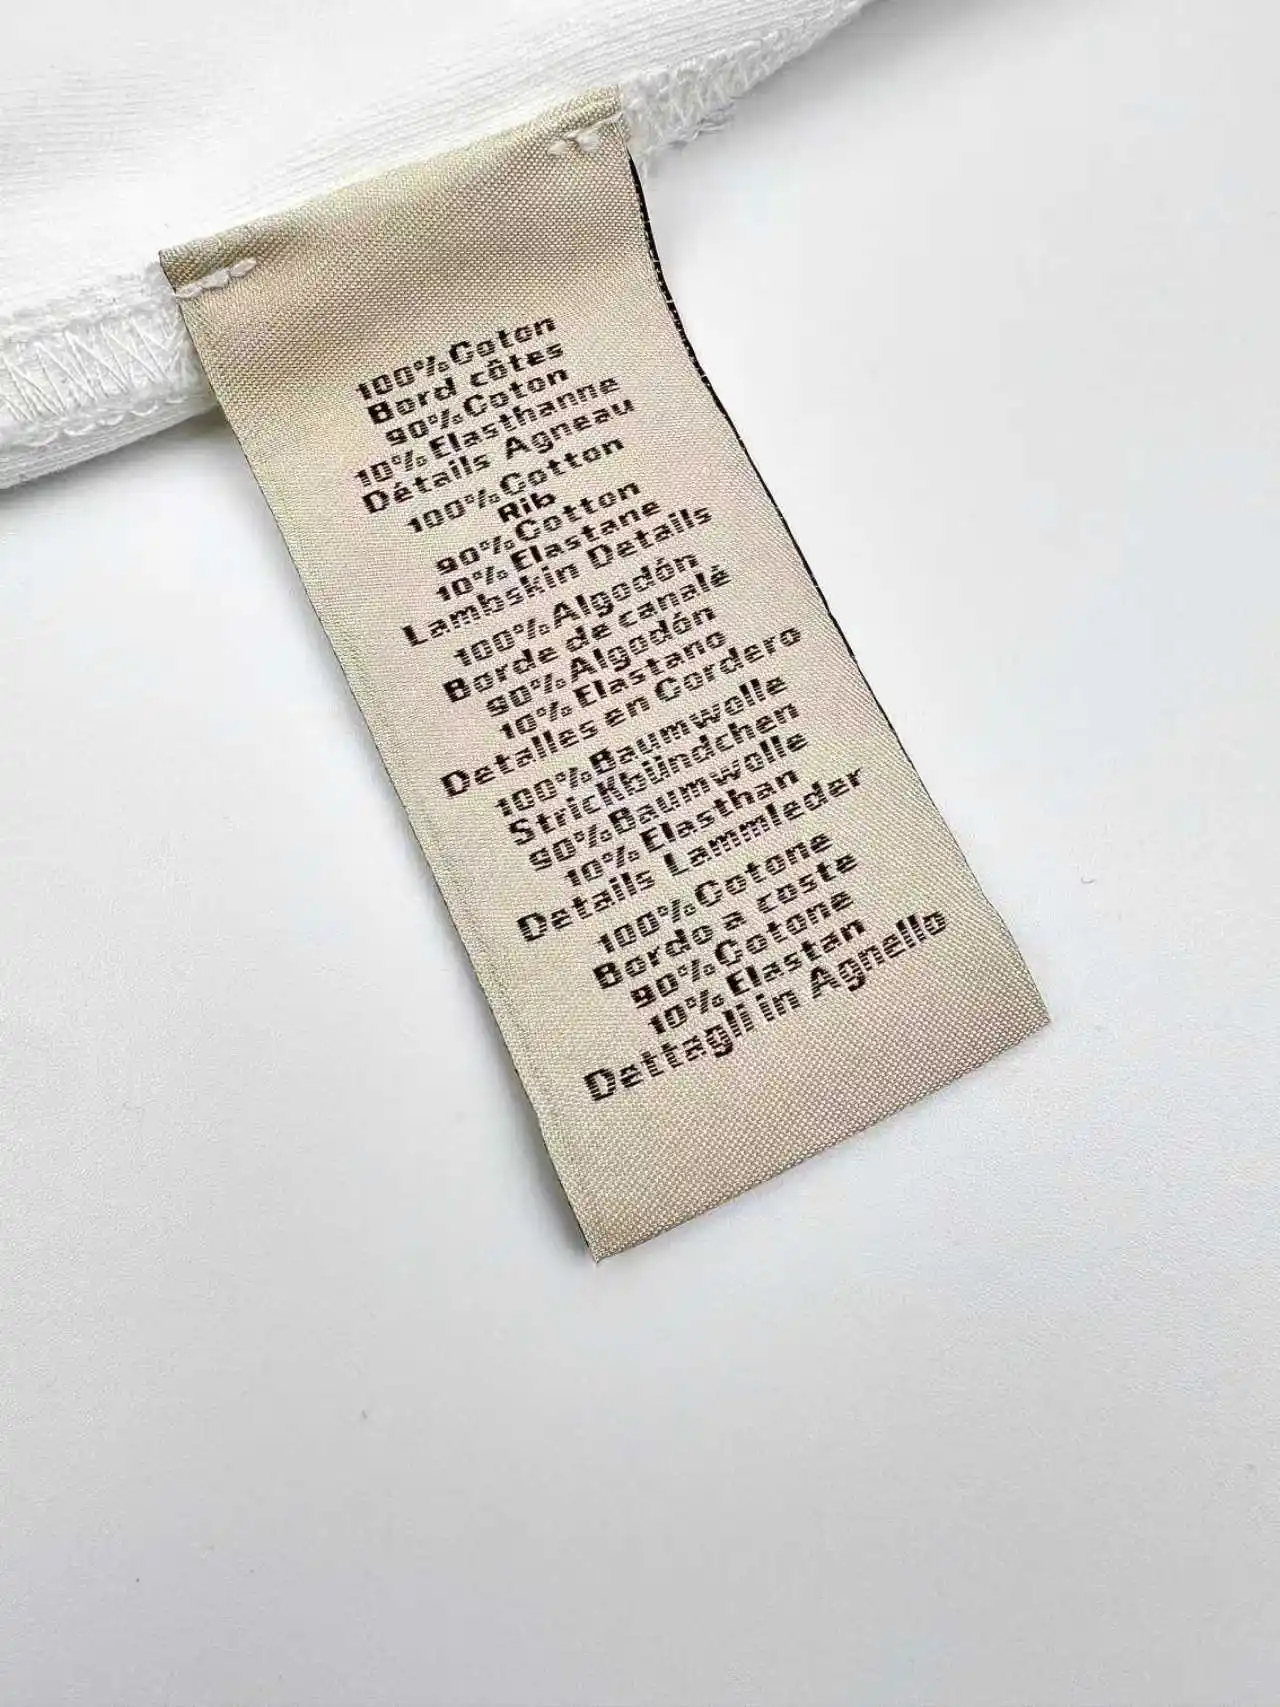 100%Coton
Bord côtes
90%Coton
10%Elasthanne
Détails Agneau
100%Cotton
Rib
90%Cotton
10%Elastane
Lambskin Details
100%Algodón
Borde de canalé
90%Algodón
10%Elastano
Detalles en Cordero
100%Baumwolle
Strickbündchen
90%Baumwolle
10%Elasthan
Details Lammleder
100%Cotone
Bordo a coste
90%Cotone
10%Elastan
Dettagli in Agnello